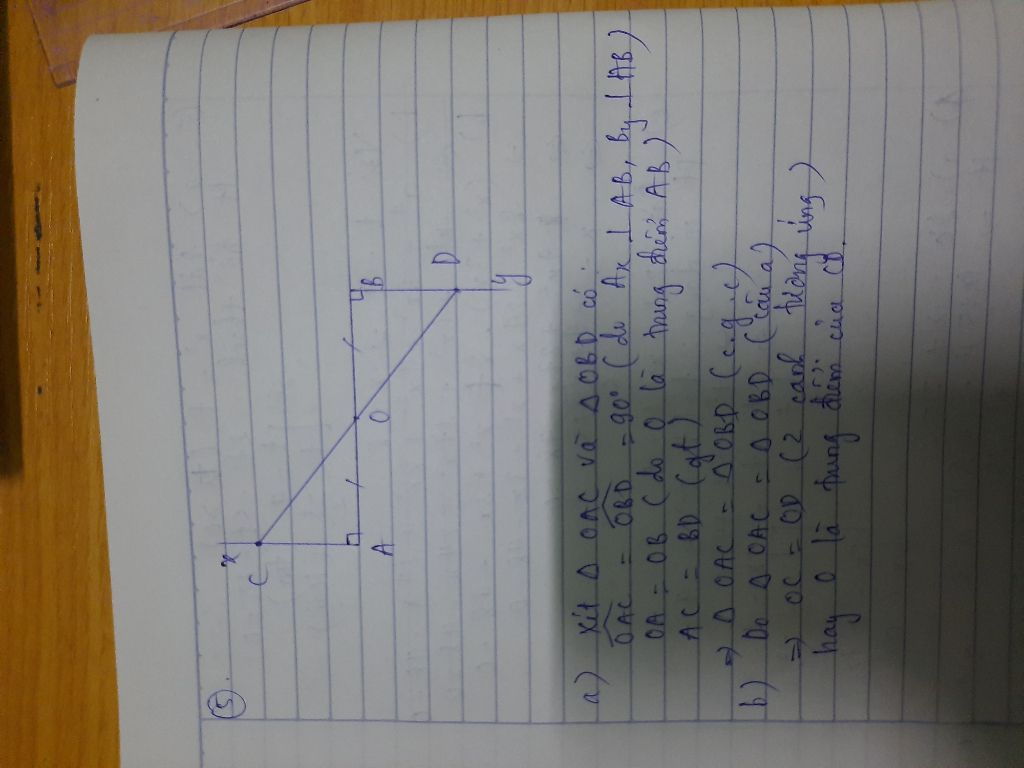 5
x
C
A
O
B
D
y
a) Xét Δ OAC và Δ OBD có
OAC = OBD = 90° (do Ax ⊥ AB, By ⊥ AB)
OA = OB (do O là trung điểm AB)
AC = BD (gt)
=> Δ OAC = Δ OBD (c.g.c)
b) Do Δ OAC = Δ OBD (câu a)
=> OC = OD (2 cạnh tương ứng)
hay O là trung điểm của CD.